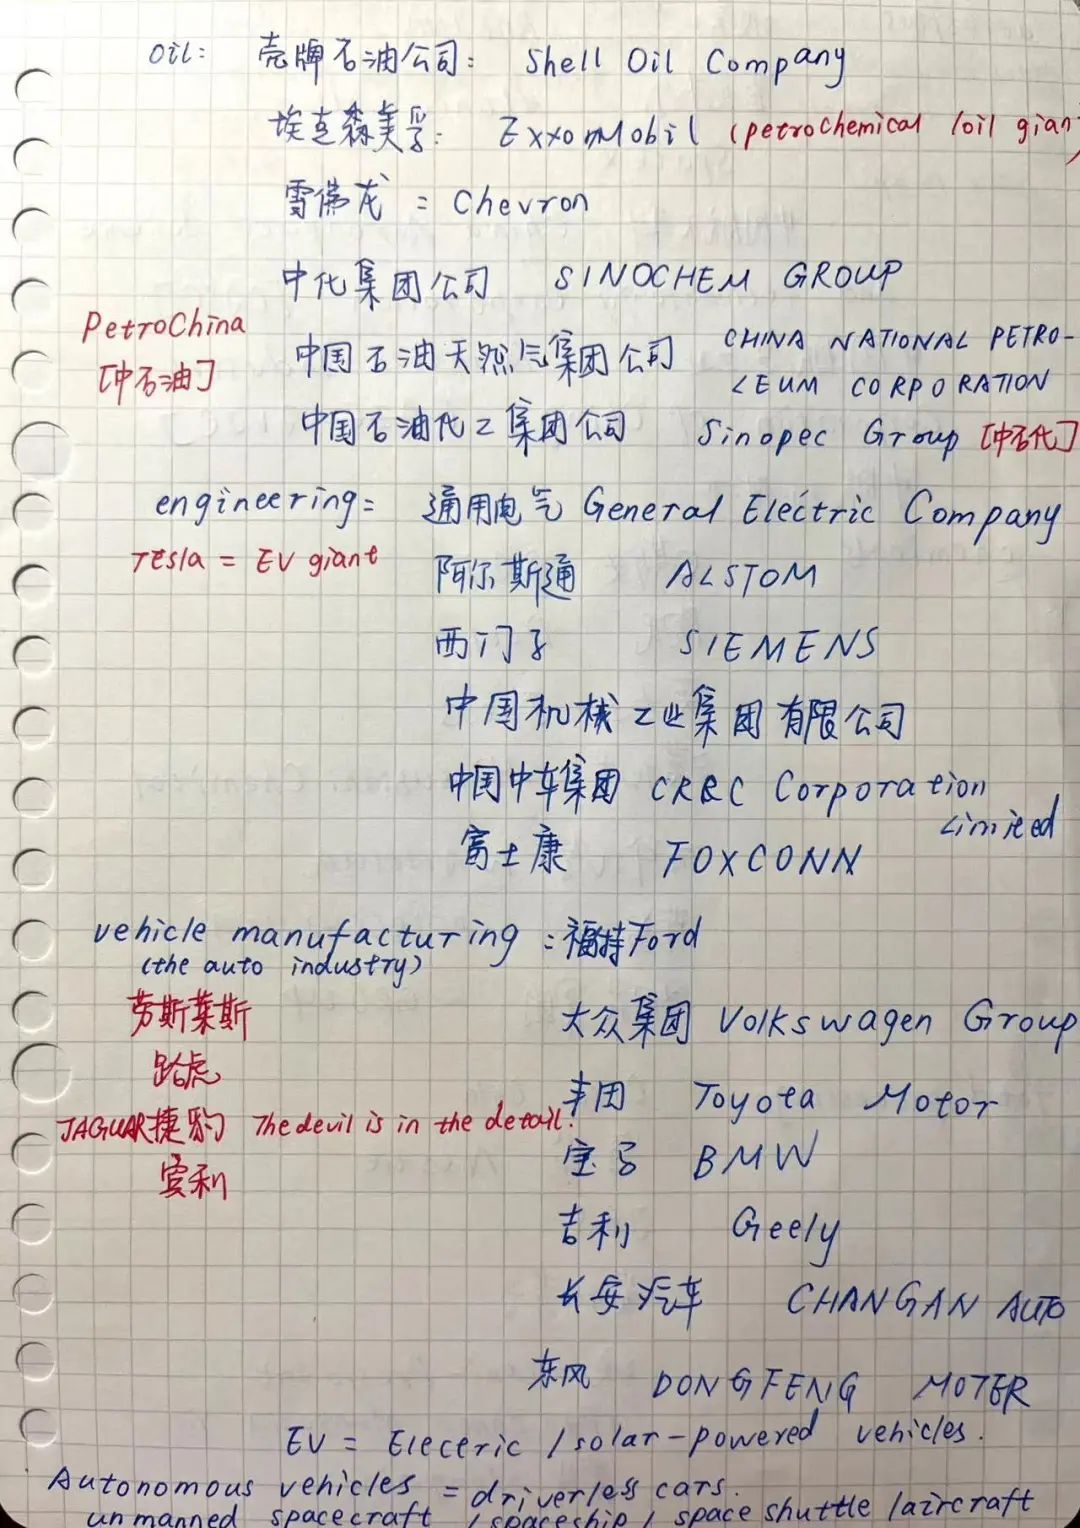 oil: 壳牌石油公司: Shell Oil Company
埃克森美孚: ExxonMobil (petrochemical /oil giant)
雪佛龙 = Chevron
中化集团公司 SINOCHEM GROUP
PetroChina
[中石油]
中国石油天然气集团公司 CHINA NATIONAL PETRO-
LEUM CORPORATION
中国石油化工集团公司 Sinopec Group [中石化]
engineering= 通用电气 General Electric Company
Tesla = EV giant
阿尔斯通 ALSTOM
西门子 SIEMENS
中国机械工业集团有限公司
中国中车集团 CRRC Corporation
Limited
富士康 FOXCONN
vehicle manufacturing : 福特Ford
(the auto industry)
劳斯莱斯
大众集团 Volkswagen Group
路虎
丰田 Toyota Motor
JAGUAR捷豹 The devil is in the detail.
宝马 BMW
宾利
吉利 Geely
长安汽车 CHANGAN AUTO
东风 DONGFENG MOTER
EV = Electric / solar-powered vehicles.
Autonomous vehicles = driverless cars.
unmanned spacecraft / spaceship / space shuttle /aircraft